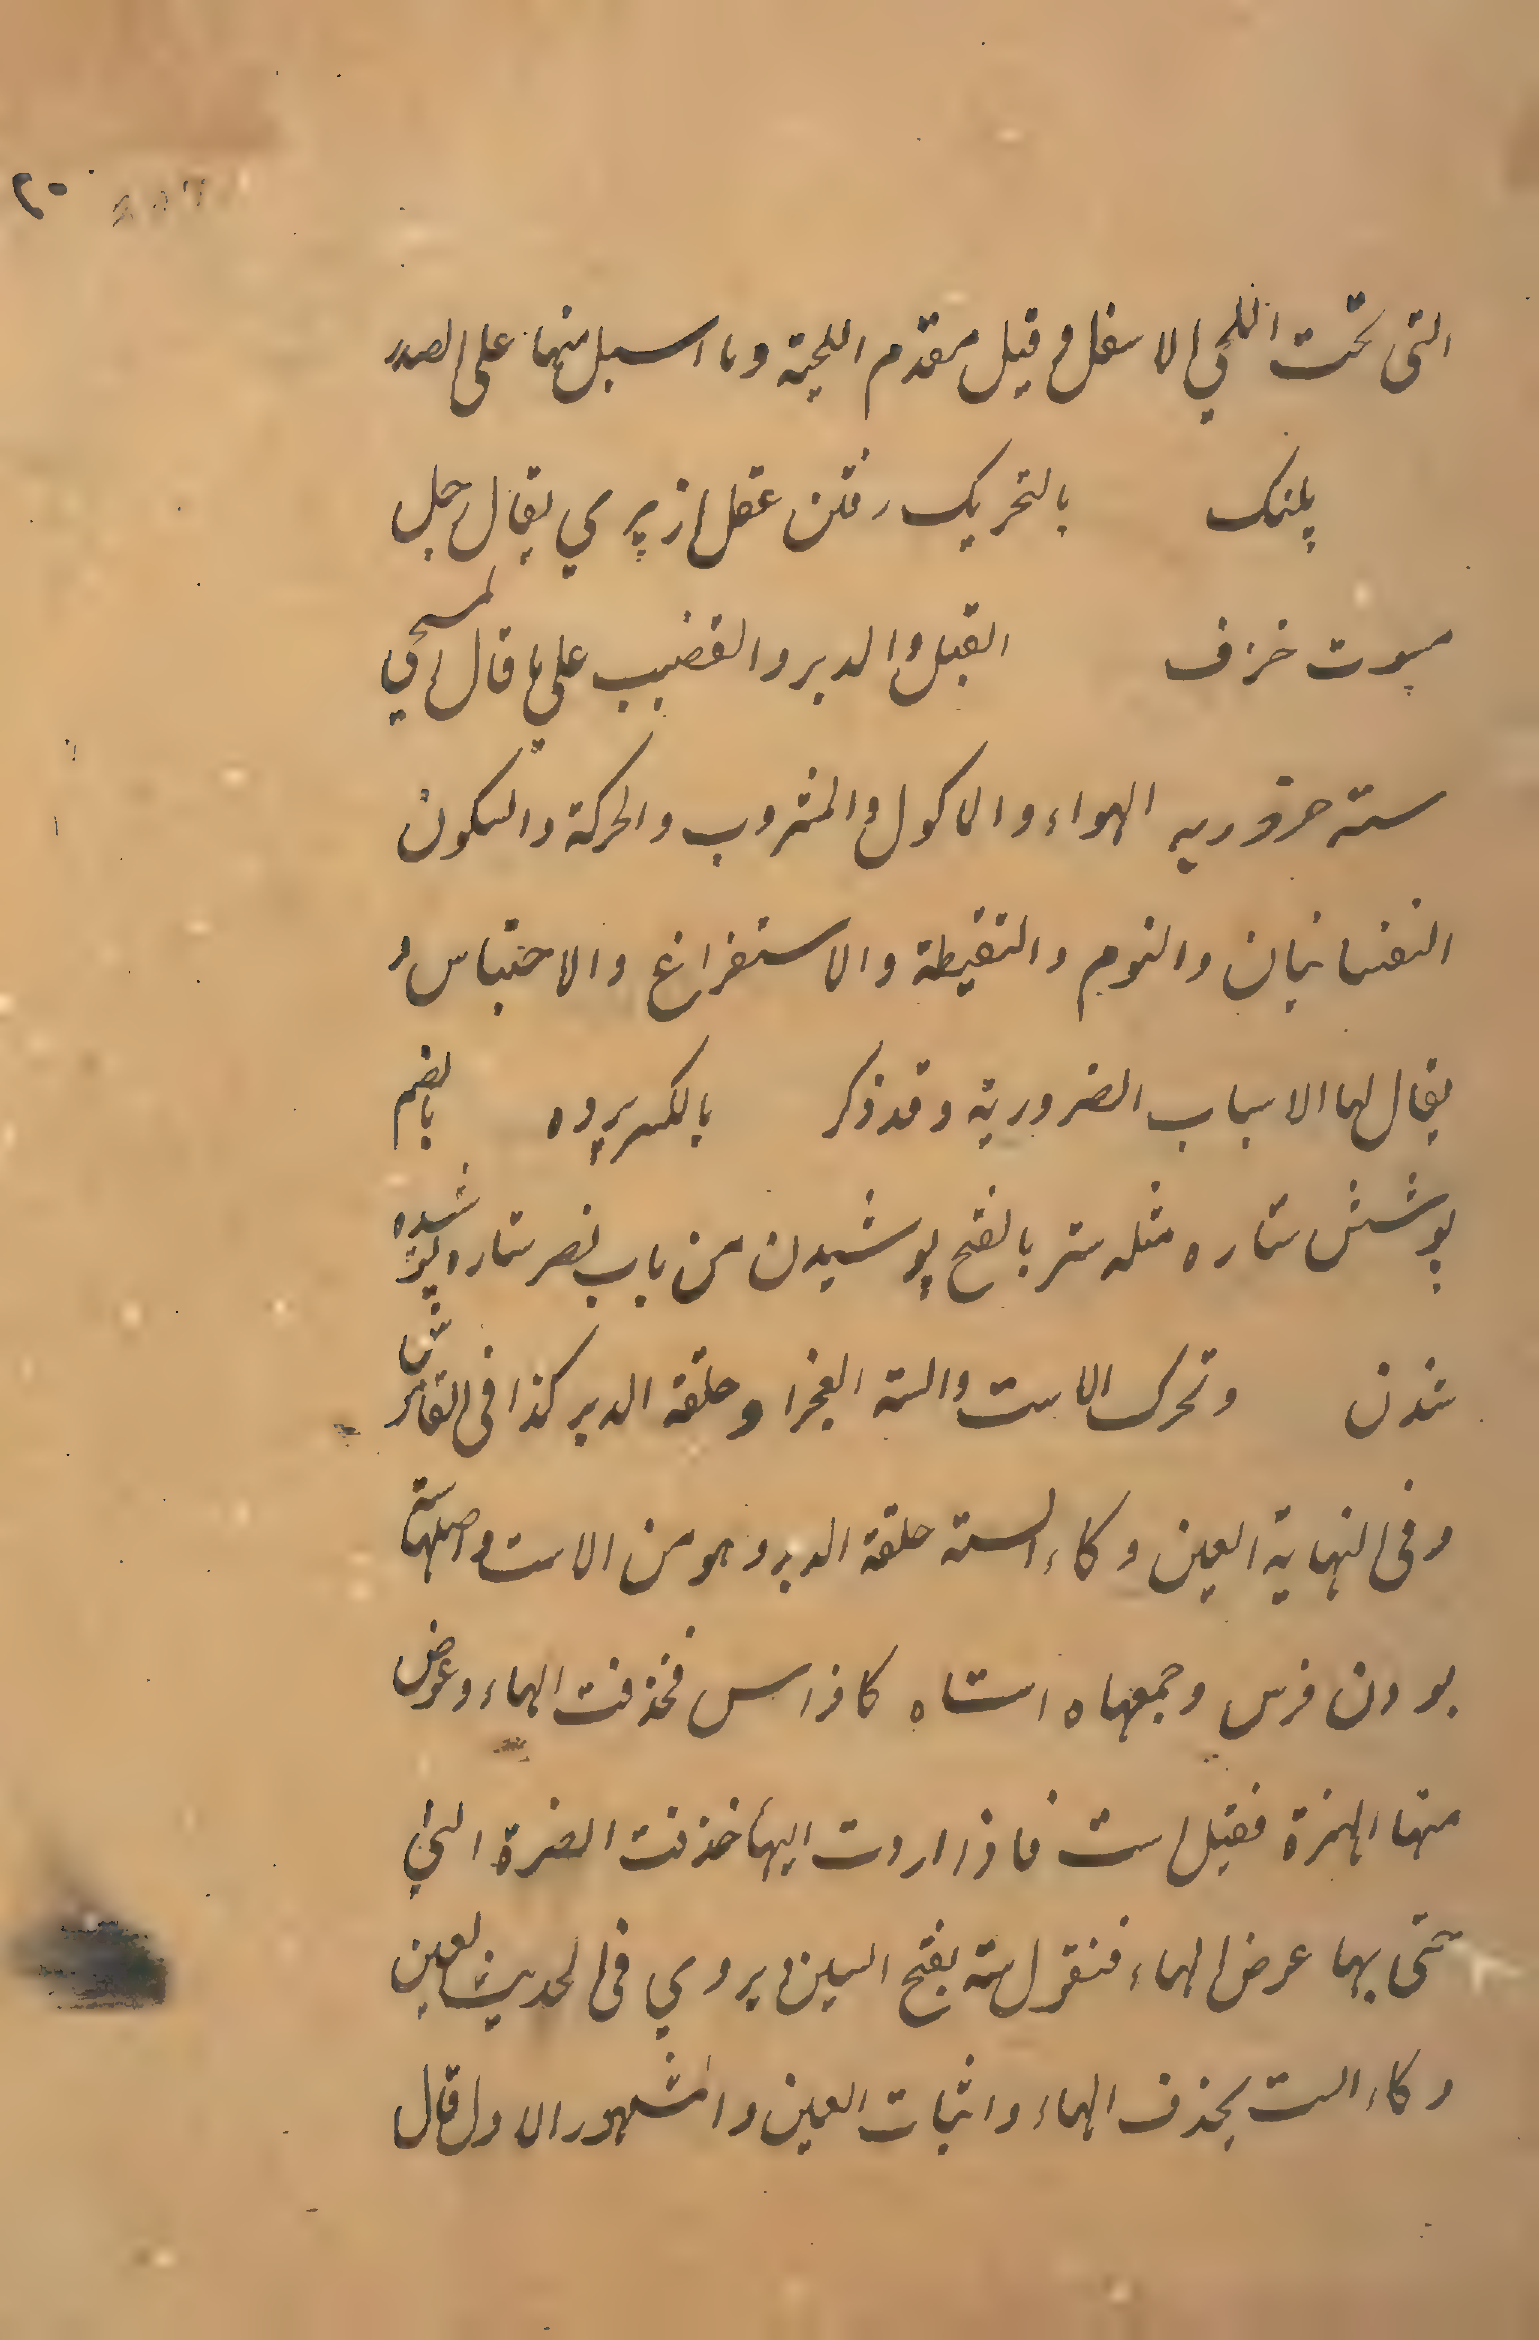 ٢٠
التى تحت اللحي الاسفل و قيل مقدم اللحية وما اسبل منها على الصدر
پلنك بالتحريك رفتن عقل از پيري يقال رجل
مسبوت خزف القبل والدبر والقضيب على ما قال المسيحي
سته ضروريه الهواء والماكول والمشروب والحركة والسكون
النفسانيان والنوم واليقيطة والاستفراغ والاحتباس و
يقال لها الاسباب الضرورية وقد ذكر بالكسر پرده بالضم
پوشش ستاره مثله ستر بالفتح پوشيدن من باب نصر ستاره پوشيده
شدن وتحرك الاست والسته العجزا وحلقة الدبر كذا فى القاموس
وفى النهاية العين وكاء السته حلقة الدبر وهو من الاست واصلها سته
بوزن فرس وجمعها استاه كافراس فحذفت الهاء وعوض
منها الهمزة فقيل است فاذا اردت اليها حذفت الهمزة التي
حتى بها عوض الهاء فنقول سته بفتح السين و يروي فى الحديث العين
وكاء الست بحذف الهاء واثبات العين والمشهور الاول قال